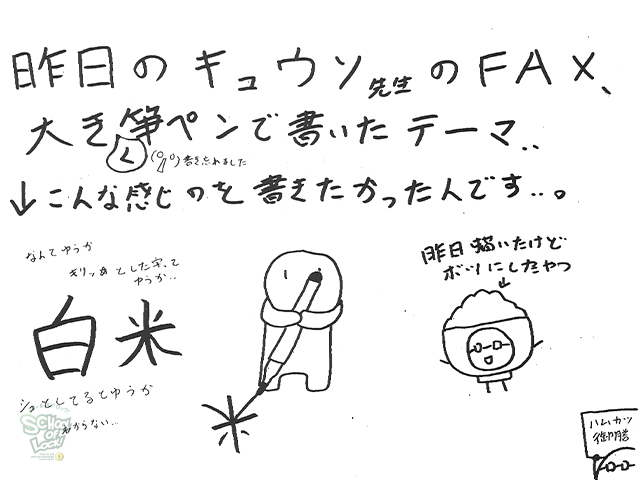 昨日のキュウソ先生のFAX、
大き筆ペンで書いたテーマ..
く
書き忘れました
↓こんな感じのを書きたかったんです..。
なんてゆうか
キリッっとした字って
ゆうか..
白米
シュッとしてるとゆうか
わからない...
米
昨日描いたけど
ボツにしたやつ
↓
ハムカツ
御膳
SCHOOL
OF
LOCK!